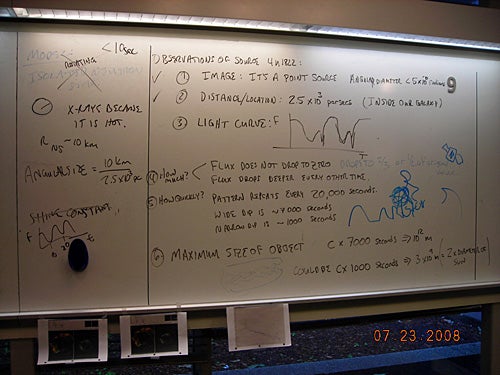 MODEL: < 10 sec
ROTATING
ISOLATED NEUTRON
STAR
X-RAYS BECAUSE
IT IS HOT.
R NS ~ 10 km
ANGULAR SIZE = 10 km
2.5 x 10³ pc
CONSTANT
F
t
OBSERVATIONS OF SOURCE 4U1822:
✓ ① IMAGE: IT'S A POINT SOURCE ANGULAR DIAMETER < 5 x 10
9
✓ ② DISTANCE/LOCATION: 2.5 x 10³ parsecs (INSIDE OUR GALAXY)
③ LIGHT CURVE: F
④ HOW MUCH? < FLUX DOES NOT DROP TO ZERO DROPS TO
FLUX DROPS DEEPER EVERY OTHER TIME.
⑤ HOW QUICKLY? PATTERN REPEATS EVERY 20,000 SECONDS.
WIDE DIP IS ~ 7000 SECONDS
NARROW DIP IS ~ 1000 SECONDS
⑥ MAXIMUM SIZE OF OBJECT C x 7000 SECONDS ⇒ 10¹² m
COULD BE C x 1000 SECONDS ⇒ 3 x 10 m (= 2 x DIAMETER OF
SUN
07 23 2008